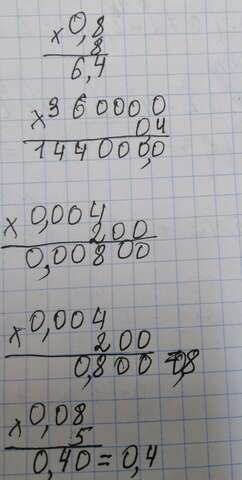 × 0,8
8
6,4
× 360000
04
1440000,0
× 0,004
200
0,00800
× 0,004
200
0,800 = 0,8
× 0,08
5
0,40 = 0,4